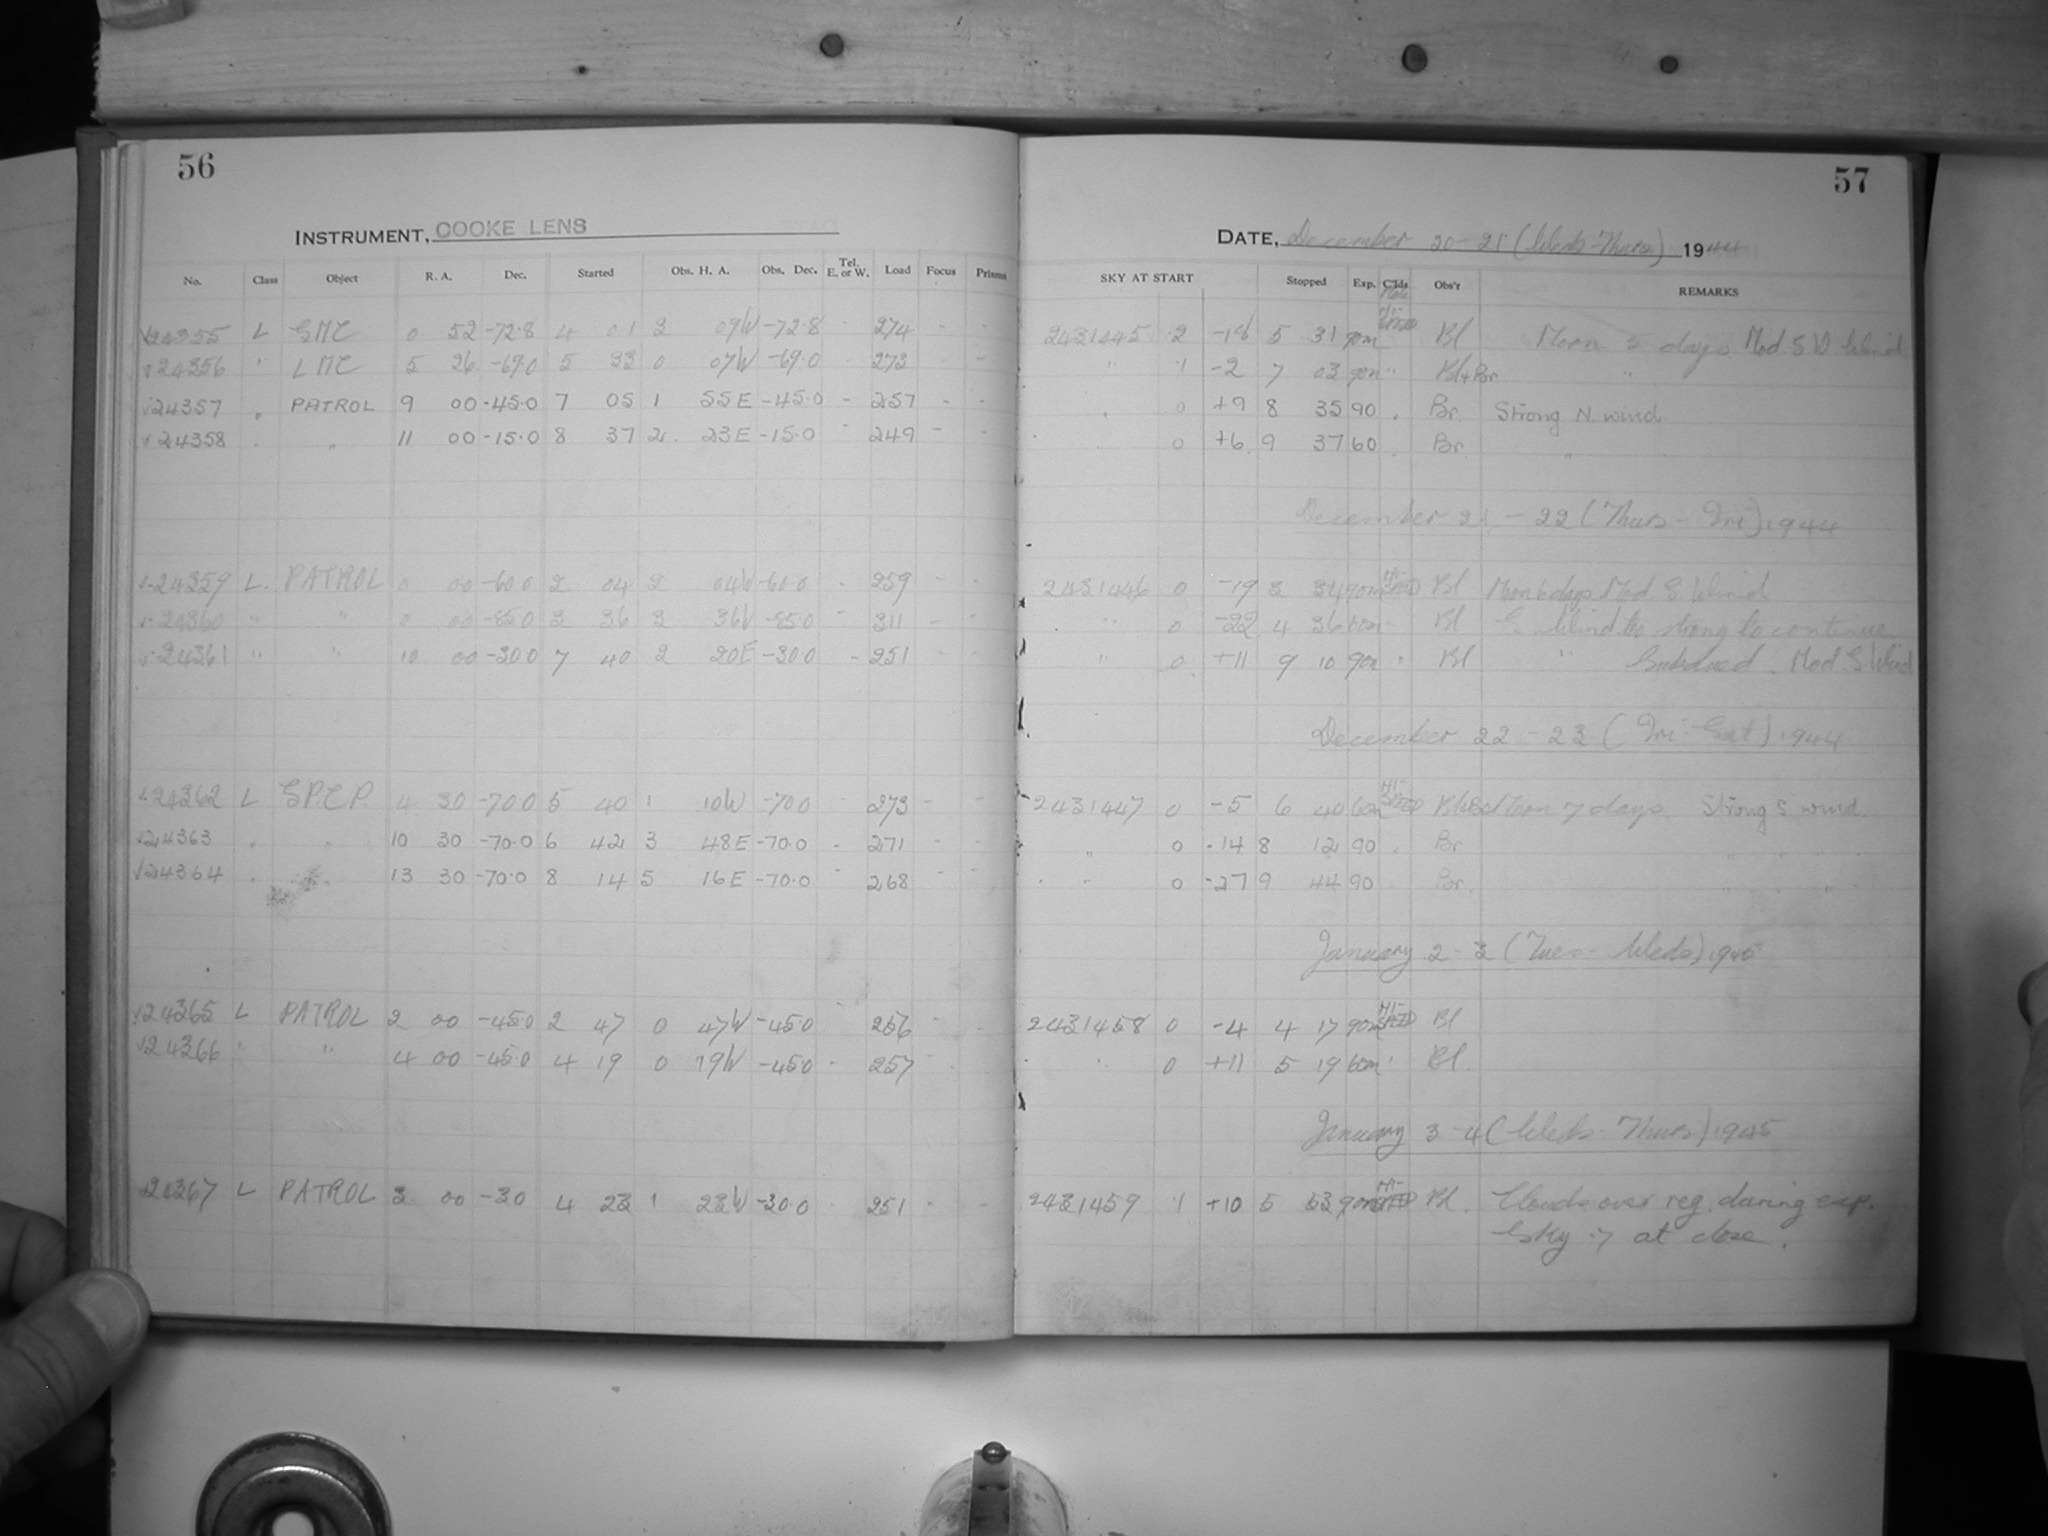 56
INSTRUMENT, COOKE LENS
No. Class Object R. A. Dec. Started Obs. H. A. Obs. Dec. Tel. E. or W. Load Focus Prisms
24355 L SMC 0 52 -72.8 4 01 3 09W -72.8 - 274 - -
24356 " LMC 5 26 -69.0 5 33 0 07W -69.0 - 273 - -
24357 " PATROL 9 00 -45.0 7 05 1 55E -45.0 - 257 - -
24358 " " 11 00 -15.0 8 37 2 23E -15.0 - 249 - -
24359 L. PATROL 0 00 -60.0 2 04 2 04W -60.0 - 259 - -
24360 " " 0 00 -85.0 3 36 3 36W -85.0 - 311 - -
24361 " " 10 00 -30.0 7 40 2 20E -30.0 - 251 - -
24362 L S.P.C.P. 4 30 -70.0 5 40 1 10W -70.0 273 - -
24363 " " 10 30 -70.0 6 42 3 48E -70.0 - 271 - -
24364 " " 13 30 -70.0 8 14 5 16E -70.0 - 268 - -
24365 L PATROL 2 00 -45.0 2 47 0 47W -45.0 - 256 - -
24366 " " 4 00 -45.0 4 19 0 19W -45.0 - 257 - -
24367 L PATROL 3 00 -30 4 23 1 23W -30.0 251 - -
57
DATE, December 20-21 (Weds-Thurs) 1944
SKY AT START Stopped Exp. C'lds Obs'r REMARKS
2431445 .2 -18 5 31 90m Bl Moon 5 days Mod S W Wind
" 1 -2 7 03 90m " Bl+Br "
" 0 +9 8 35 90 " Br. Strong N. wind.
" 0 +6 9 37 60 " Br. "
December 21 - 22 (Thurs - Fri) 1944
2431446 0 -19 3 34 90m HI-SPEED Bl Moon 6 days Mod S Wind
" 0 -22 4 36 60m " Bl S Wind too strong to continue
" 0 +11 9 10 90m " Bl " Subsided. Mod S. Wind
December 22 - 23 (Fri-Sat) 1944
2431447 0 -5 6 40 60m HI-SPEED Bl+Br Moon 7 days. Strong S wind.
" 0 -14 8 12 90 " Br " " "
" " 0 -27 9 44 90 Br. " " "
January 2-3 (Tues - Weds) 1945
2431458 0 -4 4 17 90m HI-SPEED Bl
" " 0 +11 5 19 60m " Bl.
January 3-4 (Weds - Thurs) 1945
2431459 1 +10 5 53 90m HI-SPEED Bl. Clouds over reg. during exp.
Sky .7 at close.